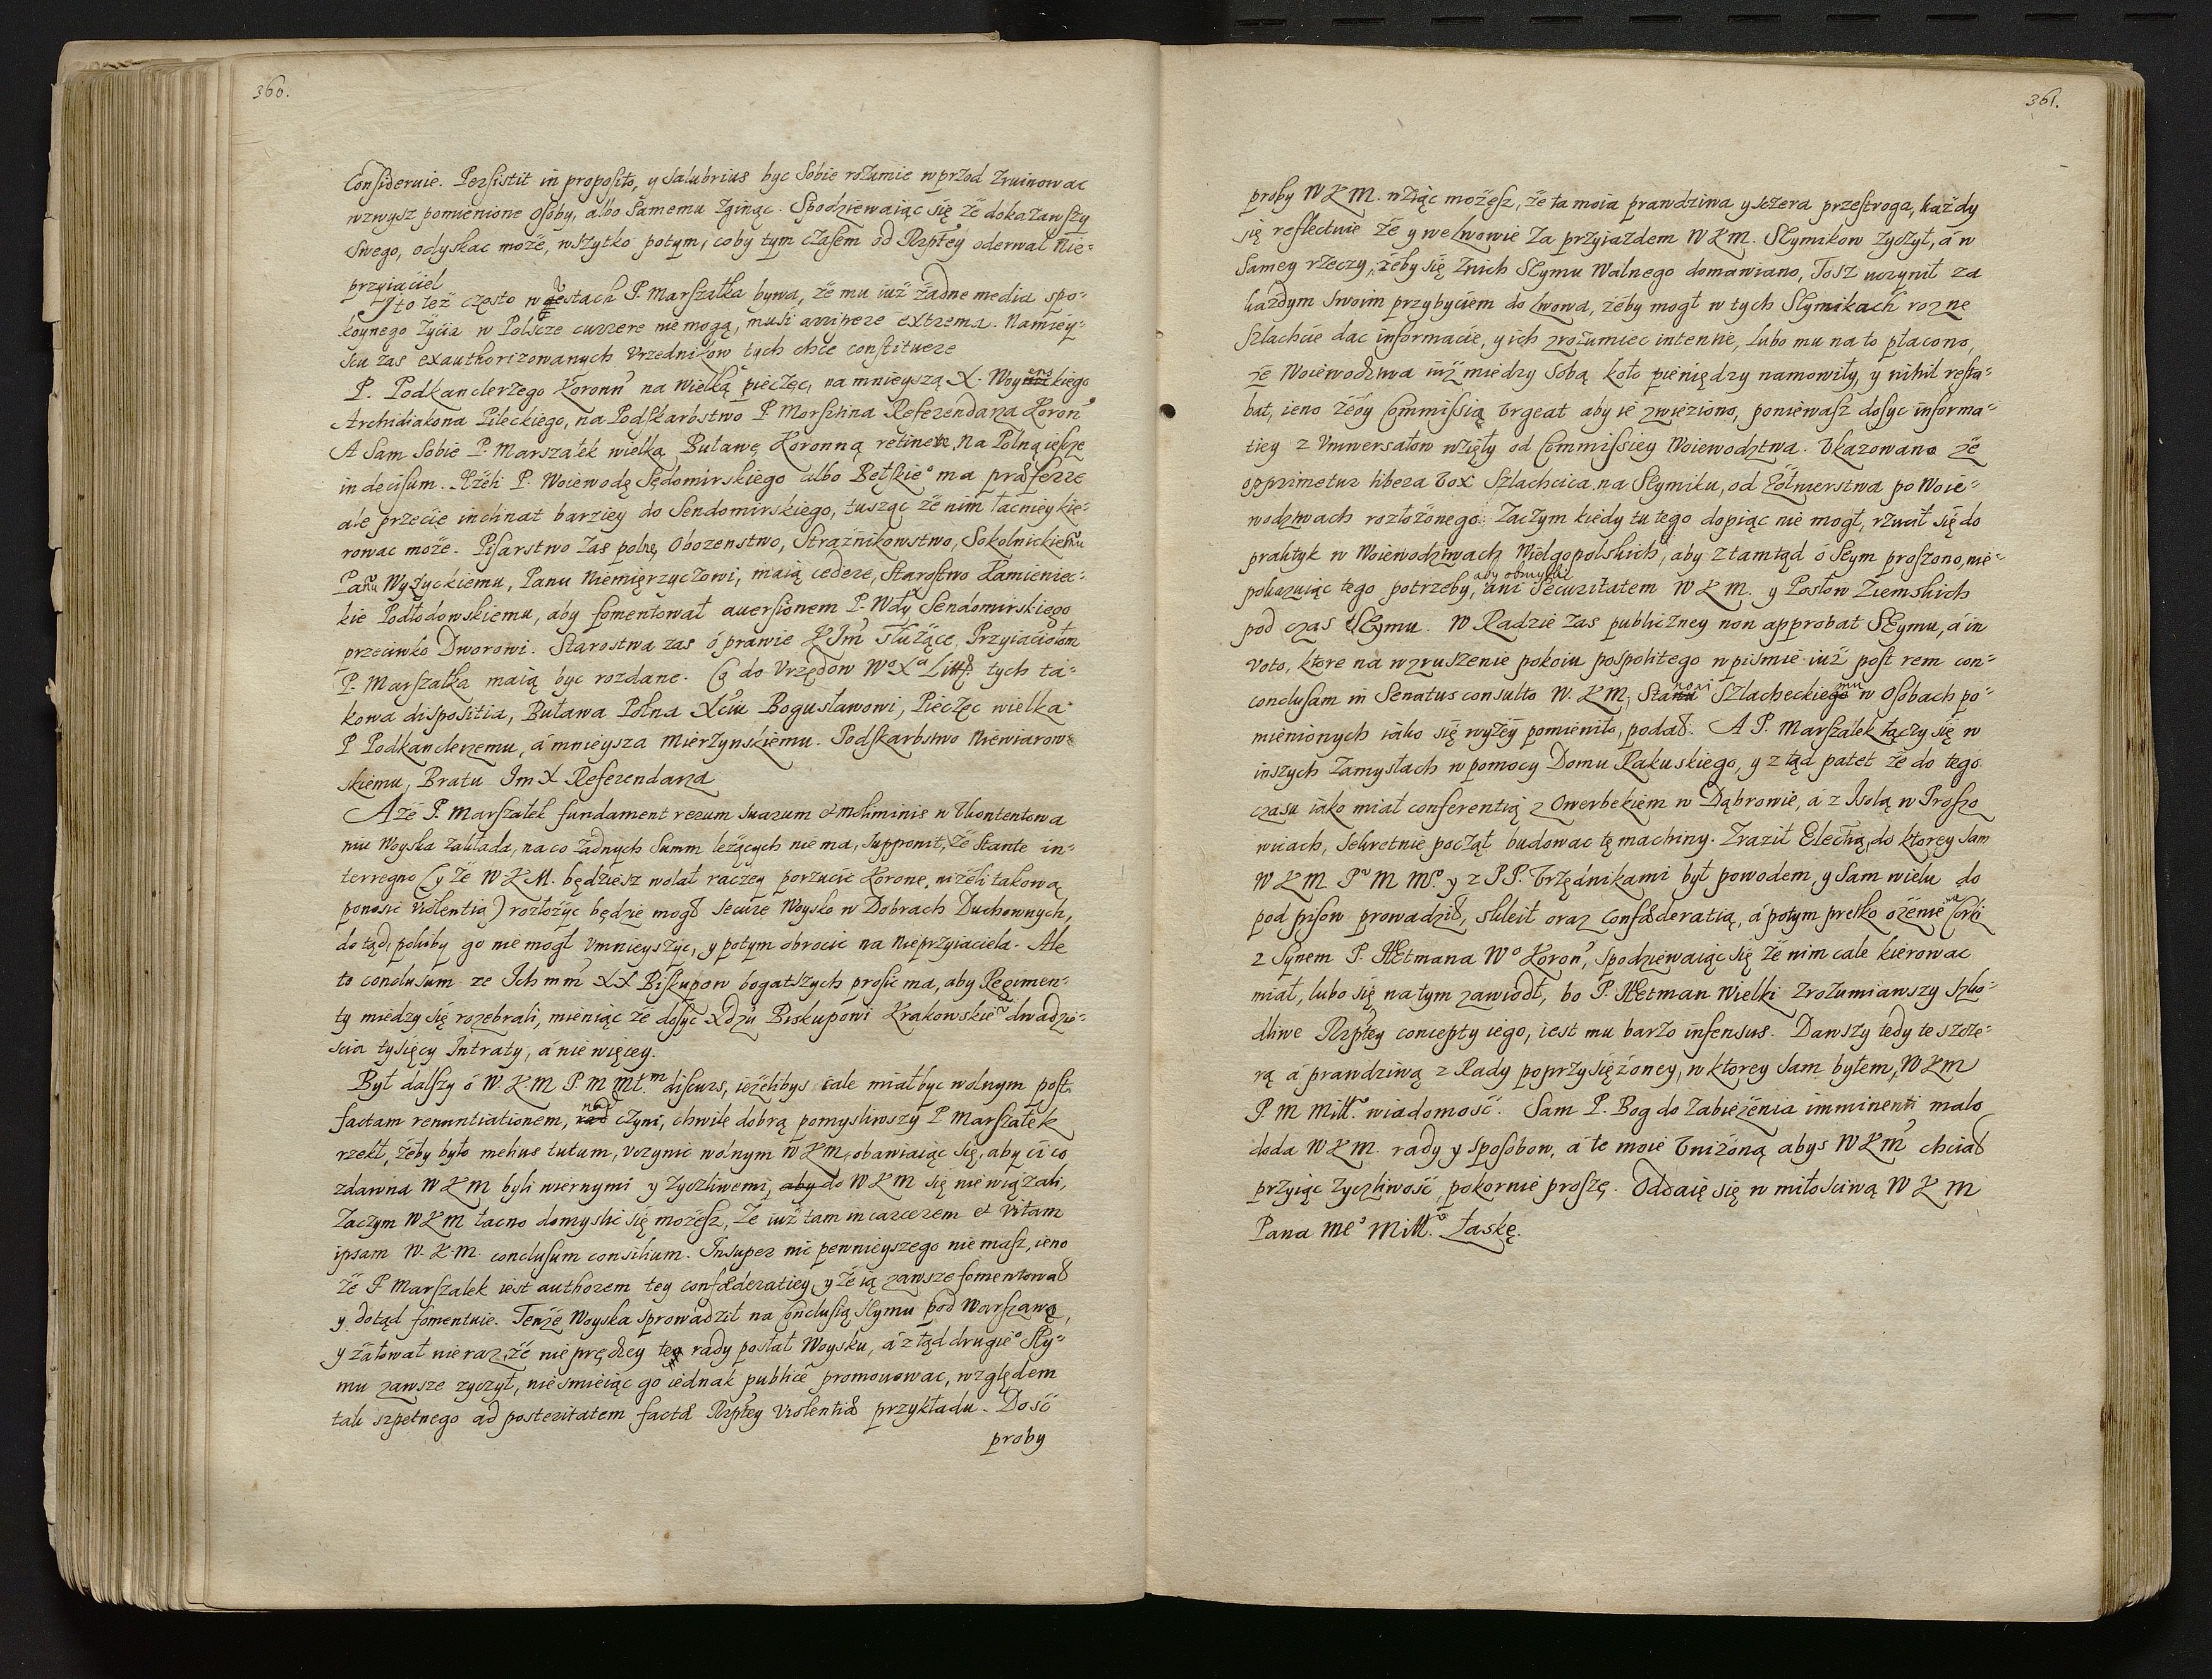 360.
Consideruie. Persistit in proposito, y salubrius byc sobie rozumie wprzod zruinowac
wzwysz pomienione osoby, albo samemu zginąc. Spodziewaiąc się że dokazawszy
swego, odyskac może, wszytko potym, coby tym czasem od Rzpłey oderwał Nie-
przyiaciel
Y to też często w ustach P. Marszałka bywa, że mu iuż żadne media spo-
koynego życia w Polscze currere nie mogą, musi arripere extrema. Namiey-
scu zas exauthorizowanych Vrzednikow tych chce constituere
P. Podkanclerzego Koronn na wielką pieczęc, na mnieyszą X. Woyskiego
Archidiakona Pileckiego, na Podskarbstwo P. Morsztina Referendarza Koron
A Sam Sobie P. Marszałek wielką Buławę Koronną retinere, Na Polną ieszcze
indecisum. Ieżeli P. Woiewodę Sędomirskiego albo Bełskie° ma præferre
ale przecie inclinat barziey do Sendomirskiego, tusząc że nim łacniey kie-
rowac może. Pisarstwo zas polne, Obozenstwo, Strażnikowstwo, Sokolnickiemu
Panu Wyżyckiemu, Panu Niemięrzyczowi, maią cedere, Starostwo Kamieniec-
kie Podłodowskiemu, aby fomentował auersionem P. Wdy Sendomirskiego
przeciwko Dworowi. Starostwa zas o prawie KJm służące, Przyiaciołom
P. Marszałka maią byc rozdane. Co do Vrzędow W° Xa Litt. tych ta-
kowa dispositia, Buława Polna Xciu Bogusławowi, Pieczęc wielka
P Podkanclerzemu, á mnieysza Mierzynskiemu. Podskarbstwo Niewiarow-
skiemu, Bratu Im X Referendarza
A że P. Marszałek fundament rerum suarum & moliminis w Vkontentowa
niu Woyska zakłada, na co żadnych Summ leżących nie ma, supponit, że stante in-
terregno (y że WKM. będziesz wolał raczey porzucic Korone, niżeli takową
ponosic violentią) rozłożyc będzie mogł secure Woysko w Dobrach Duchownych,
do tąd, pokiby go nie mogł vmnieyszyc, y potym obrocic na Nieprzyiaciela. Ale
to conclusum ze Ich mm XX Biskupow bogatszych prosic ma, aby Regimen-
ty miedzy się rozebrali, mieniąc że dosyc Xdzu Biskupowi Krakowskie° dwadzie-
scia tysięcy Intraty, á nie więcey.
Był dalszy ó W.K.M P.M Mtm discurs, ieżelibys cale miał byc wolnym post
factam renuntiationem, nad czym, chwilę dobrą pomysliwszy P Marszałek
rzekł, żeby było melius tutum, vczynic wolnym WKM, obawiaiąc się, aby ci co
zdawna WKM byli wiernymi y życzliwemi, aby do WKM się nie wiązali,
Zaczym WKM łacno domyslic się możesz, że iuż tam in carcerem et vitam
ipsam W.K.M. conclusum consilium. Insuper nic pewnieyszego nie masz, ieno
że P Marszałek iest authorem tey confæderatiey, y że ią zawsze fomentował
y dotąd fomentuie. Tenże Woyska sprowadził na conclusią Seymu pod Warszawę,
y żałował nie raz, że nie prędzey tey rady posłał Woysku, á z tąd drugie° Sey-
mu zawsze życzył, nie smieiąc go iednak publice promouowac, względem
tak szpetnego ad posteritatem factæ Rzpłey violentiæ przykładu. Dość
proby
361.
proby WKM. wziąc możesz, że ta moia prawdziwa y sczera przestroga, każdy
się reflectuie że y we Lwowie za przyiazdem WKM. Seymikow życzył, á w
samey rzeczy, żeby się z nich Seymu Walnego domawiano, Tosz uczynił za
każdym swoim przybyciem do Lwowa, żeby mogł w tych Seymikach rozne
Szlachcie dac informacie, y ich zrozumiec intentie, lubo mu na to płacono,
że Woiewodztwa iuż miedzy sobą koło pieniędzy namowiły, y nihil resta-
bat, ieno żeby Commissią vrgeat aby ie zwieziono, poniewasz dosyc informa-
tiey z Vniwersałow wzięły od Commissiey Woiewodztwa. Vkazowano że
opprimetur libera vox Szlachcica na Seymiku, od Żołnierstwa po Woie-
wodztwach rozłożonego. Zaczym kiedy tu tego dopiąc nie mogł, rzucił się do
praktyk w Woiewodztwach Wielgopolskich, aby z tamtąd ó Seym proszono, nie-
pokazuiąc tego potrzeby, aby obmyslił ani securitatem WKM. y Posłow Ziemskich
pod czas Seymu. W Radzie zas publiczney non approbat Seymu, á in
voto, ktore na wzruszenie pokoiu pospolitego w pismie iuż post rem con-
conclusam in Senatus consulto W.KM, Stanowi Szlacheckiemu w osobach po-
mienionych iako się wyżey pomieniło, podał. A P. Marszałek łączy się w
inszych zamysłach w pomocy Domu Rakuskiego, y z tąd patet że do tego
czasu iako miał conferentią z Owerbekiem w Dąbrowie, á z Isolą w Proszo
wicach, sekretnie począł budowac tę machiny. Zraził Electią, do ktorey sam
WKM Pn M Mc. y z PP. Vrzędnikami był powodem, y sam wielu do
pod pisow prowadził, skleił oraz Confæderatią, á potym prętko ożenienie Corki
z Synem P. Hetmana W° Koron, spodziewaiąc się że nim cale kierowac
miał, lubo się na tym zawiodł, bo P. Hetman Wielki zrozumiawszy szko-
dliwe Rzpłey concepty iego, iest mu barzo infensus. Dawszy tedy te szcze-
rą á prawdziwą z Rady poprzysiężoney, w ktorey sam byłem, WKM
P.M Miłł. wiadomość. Sam P. Bog do zabieżenia imminenti malo
doda WKM. rady y sposobow, á te moie Vniżoną abys WKM chciał
przyiąc życzliwość, pokornie proszę. Oddaię się w miłosciwą WKM
Pana Me° Miłł. łaskę.